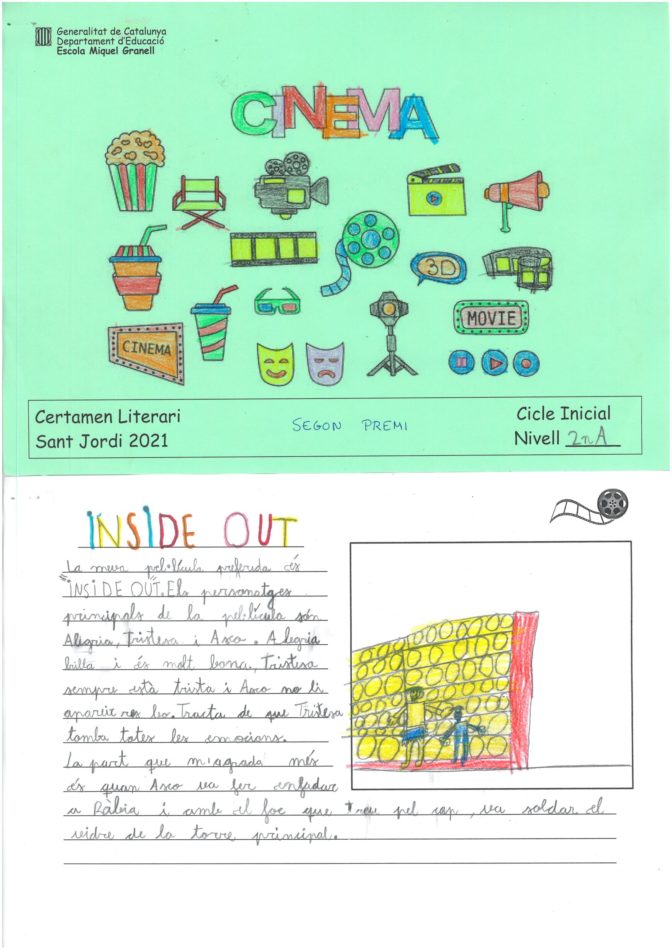 Generalitat de Catalunya
Departament d'Educació
Escola Miquel Granell
CINEMA
3D
MOVIE
CINEMA
Certamen Literari
Sant Jordi 2021
SEGON PREMI
Cicle Inicial
Nivell 2n A
INSIDE OUT
La meva pel·lícula preferida és
"INSIDE OUT. Els personatges
principals de la pel·lícula són
Alegria, Tristesa i Asco. Alegria
billa i és molt bona, Tristesa
sempre està trista i Asco no li
apareix res bo. Tracta de que Tristesa
tomba totes les emocions.
La part que m'agrada més
és quan Asco va fer enfadar
a Ràbia i amb el foc que treu pel cap, va soldar el
vidre de la torre principal.